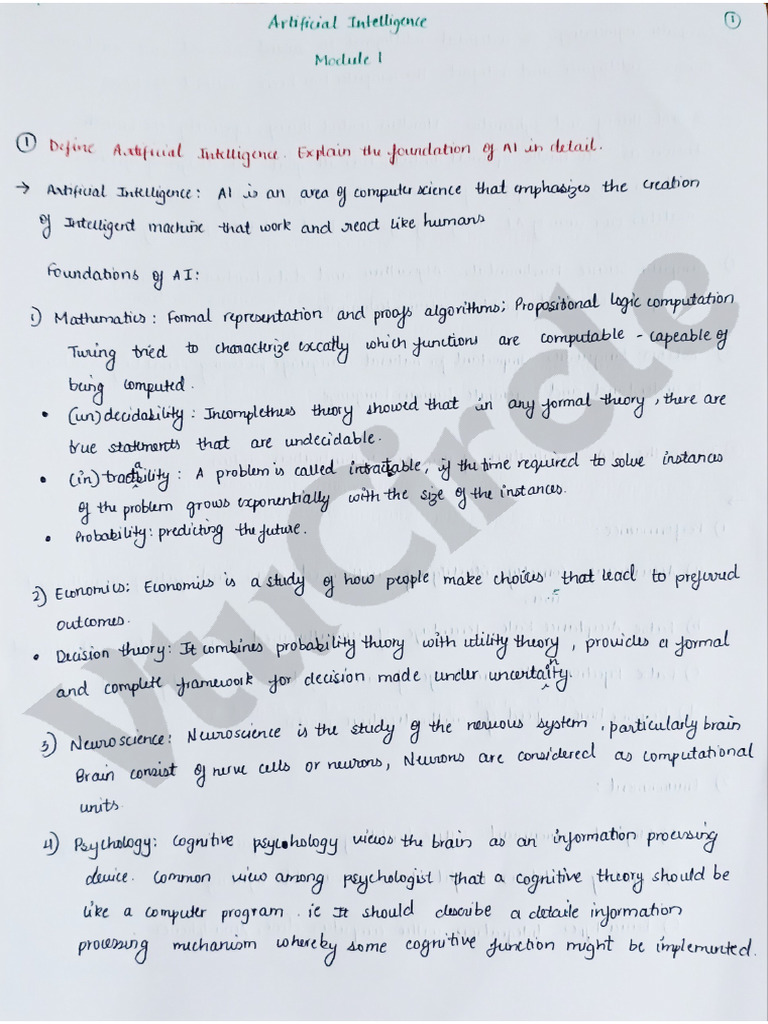 Artificial Intelligence
1
Module 1
1 Define Artificial Intelligence. Explain the foundation of AI in detail.
→ Artificial Intelligence: AI is an area of computer science that emphasizes the creation
of Intelligent machine that work and react like humans
Foundations of AI:
1) Mathematics: Formal representation and proofs algorithms; Propositional logic computation
Turing tried to characterize excatly which functions are computable - capeable of
being computed.
• (un)decidability: Incompletness theory showed that in any formal theory, there are
true statements that are undecidable.
• (in)tractability: A problem is called intractable, if the time required to solve instances
of the problem grows exponentially with the size of the instances.
• Probability: predicting the future.
2) Economics: Economics is a study of how people make choices that lead to preferred
outcomes.
• Decision theory: It combines probability theory with utility theory, provides a formal
and complete framework for decision made under uncertainty.
3) Neuroscience: Neuroscience is the study of the nervous system, particularly brain
Brain consist of nerve cells or neurons, Neurons are considered as computational
units.
4) Psychology: Cognitive psychology views the brain as an information processing
device. Common view among psychologist that a cognitive theory should be
like a computer program. ie It should describe a detaile information
processing mechanism whereby some cognitive function might be implemented.
VtuCircle